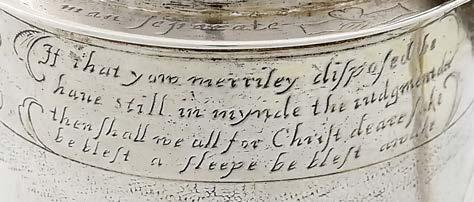 man separate
If that yow merriley disposed be
haue still in mynde the iudgment
then shall we all for Christ deare sake
be blest a sleepe be blest awake